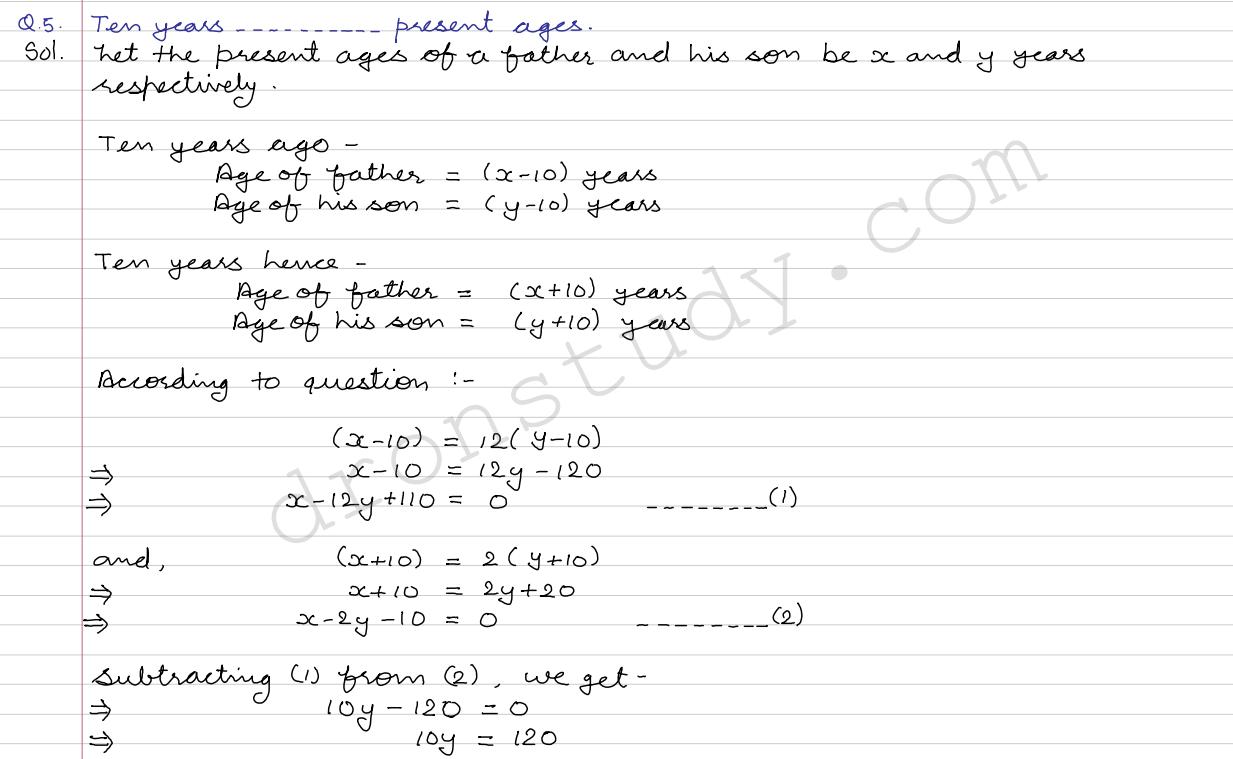 Q.5. Ten years ---------- present ages.
Sol. Let the present ages of a father and his son be x and y years
respectively.
Ten years ago -
Age of father = (x-10) years
Age of his son = (y-10) years
Ten years hence -
Age of father = (x+10) years
Age of his son = (y+10) years
According to question :-
(x-10) = 12(y-10)
⇒ x-10 = 12y-120
⇒ x-12y+110 = 0 --------(1)
and, (x+10) = 2(y+10)
⇒ x+10 = 2y+20
⇒ x-2y-10 = 0 --------(2)
Subtracting (1) from (2), we get-
⇒ 10y-120 = 0
⇒ 10y = 120
dronstudy.com